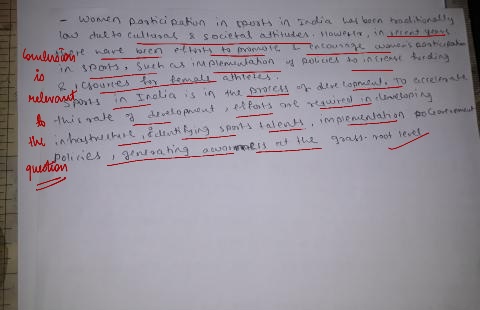 - Women participation in sports in India has been traditionally
law due to cultural & societal attitudes. However, in recent years
there have been efforts to promote & encourage women's participation
in sports, such as implementation of policies to increase funding
& resources for female athletes.
Sports in India is in the process of development. To accelerate
this rate of development, efforts are required in developing
infrastructure, identifying sports talents, implementation of Government
Policies, generating awareness at the grass-root level
Conclusion
is
relevant
to
the
question